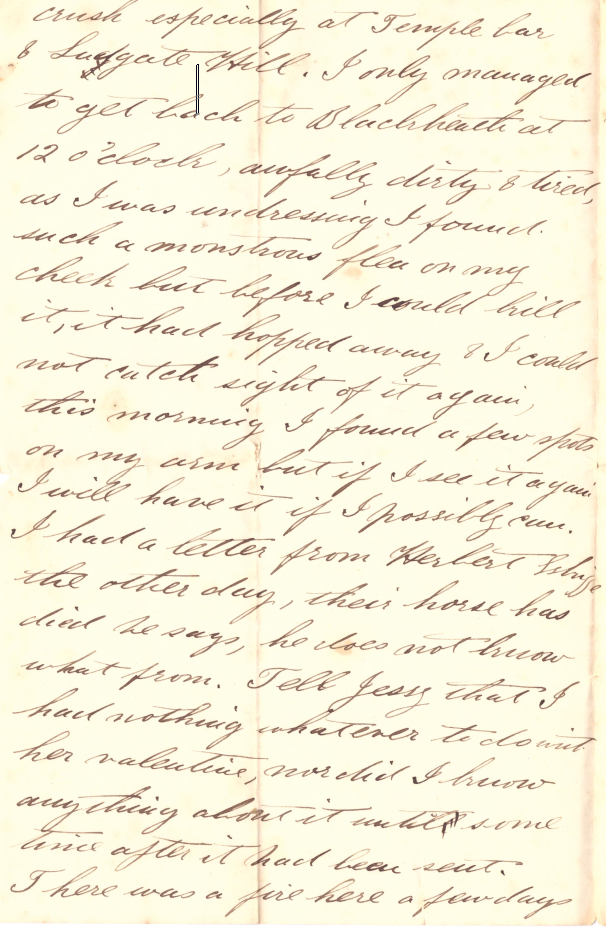 crush especially at Temple bar
& Ludgate Hill. I only managed
to get back to Blackheath at
12 o'clock, awfully dirty & tired,
as I was undressing I found.
such a monstrous flea on my
cheek but before I could kill
it, it had hopped away & I could
not catch sight of it again,
this morning I found a few spots
on my arm but if I see it again
I will have it if I possibly can.
I had a letter from Herbert
the other day, their horse has
died he says, he does not know
what from. Tell Jessy that I
had nothing whatever to do with
her valentine, nor did I know
anything about it until some
time after it had been sent.
There was a fire here a few days